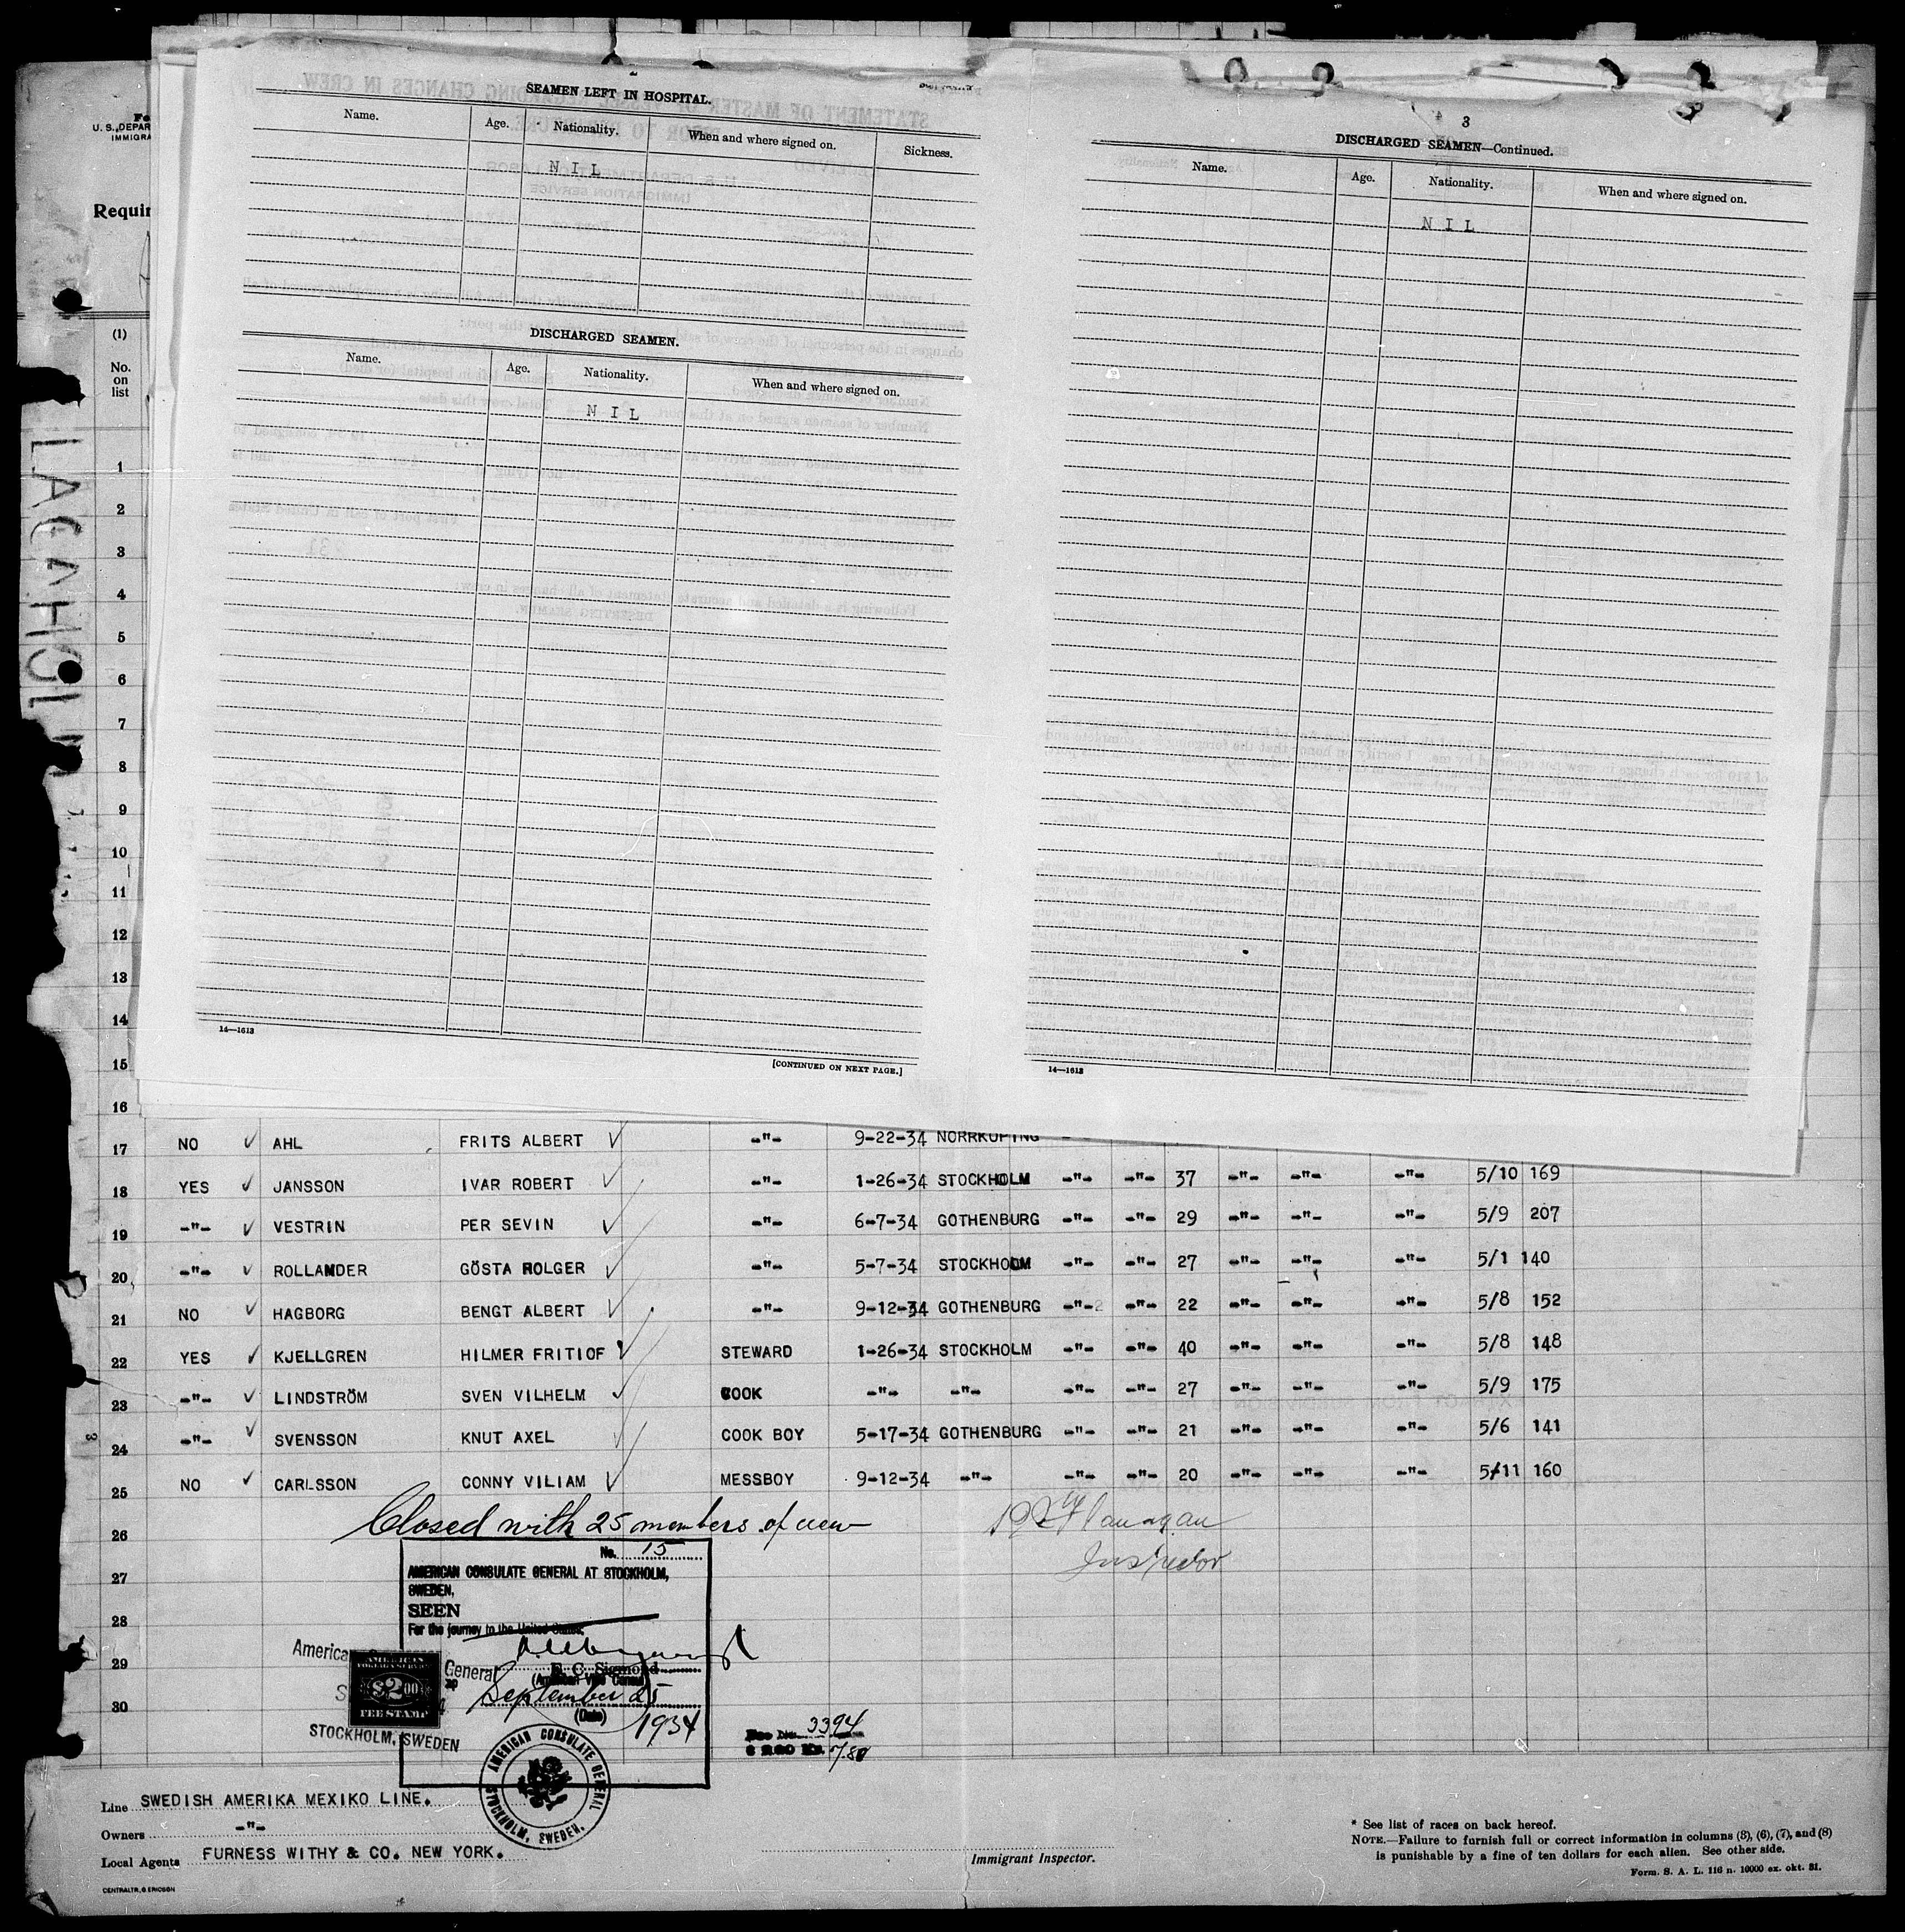 U. S. DEPAR
IMMIGRA
Requir
(1)
No.
on
list
LAGAHOL
SEAMEN LEFT IN HOSPITAL.
Name. Age. Nationality. When and where signed on. Sickness.
NIL
DISCHARGED SEAMEN.
Name. Age. Nationality. When and where signed on.
NIL
14—1613
[CONTINUED ON NEXT PAGE.]
3
DISCHARGED SEAMEN—Continued.
Name. Age. Nationality. When and where signed on.
NIL
14—1613
1
2
3
4
5
6
7
8
9
10
11
12
13
14
15
16
17 NO ✓ AHL FRITS ALBERT ✓ -"- 9-22-34 NORRKÖPING
18 YES ✓ JANSSON IVAR ROBERT ✓ -"- 1-26-34 STOCKHOLM -"- -"- 37 -"- -"- -"- 5/10 169
19 -"- ✓ VESTRIN PER SEVIN ✓ -"- 6-7-34 GOTHENBURG -"- -"- 29 -"- -"- -"- 5/9 207
20 -"- ✓ ROLLANDER GÖSTA HOLGER ✓ -"- 5-7-34 STOCKHOLM -"- -"- 27 -"- -"- -"- 5/1 140
21 NO ✓ HAGBORG BENGT ALBERT ✓ -"- 9-12-34 GOTHENBURG -"- -"- 22 -"- -"- -"- 5/8 152
22 YES ✓ KJELLGREN HILMER FRITIOF ✓ STEWARD 1-26-34 STOCKHOLM -"- -"- 40 -"- -"- -"- 5/8 148
23 -"- ✓ LINDSTRÖM SVEN VILHELM ✓ COOK -"- -"- -"- -"- 27 -"- -"- -"- 5/9 175
24 -"- ✓ SVENSSON KNUT AXEL ✓ COOK BOY 5-17-34 GOTHENBURG -"- -"- 21 -"- -"- -"- 5/6 141
25 NO ✓ CARLSSON CONNY VILIAM ✓ MESSBOY 9-12-34 -"- -"- -"- 20 -"- -"- -"- 5/11 160
Closed with 25 members of crew
Flanagan
Inspector
26
27
28
29
30
No. 15
AMERICAN CONSULATE GENERAL AT STOCKHOLM,
SWEDEN,
SEEN
For the journey to the United States,
E. C. Sigmond
(American Vice Consul)
September 25
(Date)
1934
America
General
STOCKHOLM, SWEDEN
AMERICAN
FOREIGN SERVICE
$2.00
FEE STAMP
AMERICAN CONSULATE GENERAL
STOCKHOLM, SWEDEN.
3394
7.80
Line SWEDISH AMERIKA MEXIKO LINE.
Owners -"-
Local Agents FURNESS WITHY & CO. NEW YORK.
CENTRALTR, G. ERICSON
Immigrant Inspector.
* See list of races on back hereof.
NOTE.—Failure to furnish full or correct information in columns (3), (6), (7), and (8)
is punishable by a fine of ten dollars for each alien. See other side.
Form. S. A. L. 116 n. 10000 ex. okt. 31.